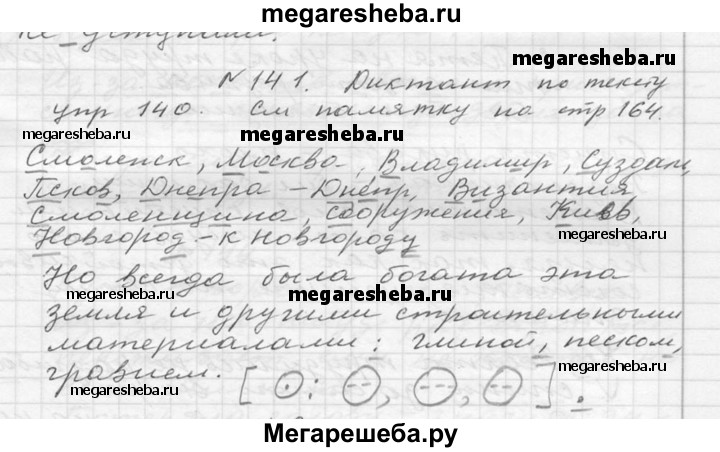 megaresheba.ru
не уступили.
megaresheba.ru
N 141. Диктант по тексту
упр 140. См памятку на стр 164.
megaresheba.ru megaresheba.ru megaresheba.ru
Смоленск, Москва, Владимир, Суздаль,
Псков, Днепра – Днепр, Византия
Смоленщина, сооружения, Киев,
Новгород – к Новгороду
Но всегда была богата эта
megaresheba.ru megaresheba.ru
земля и другими строительными
материалами: глиной, песком,
megaresheba.ru
гравием. [⊙: ⊖, ⊖, ⊖].
megaresheba.ru
Мегарешеба.ру